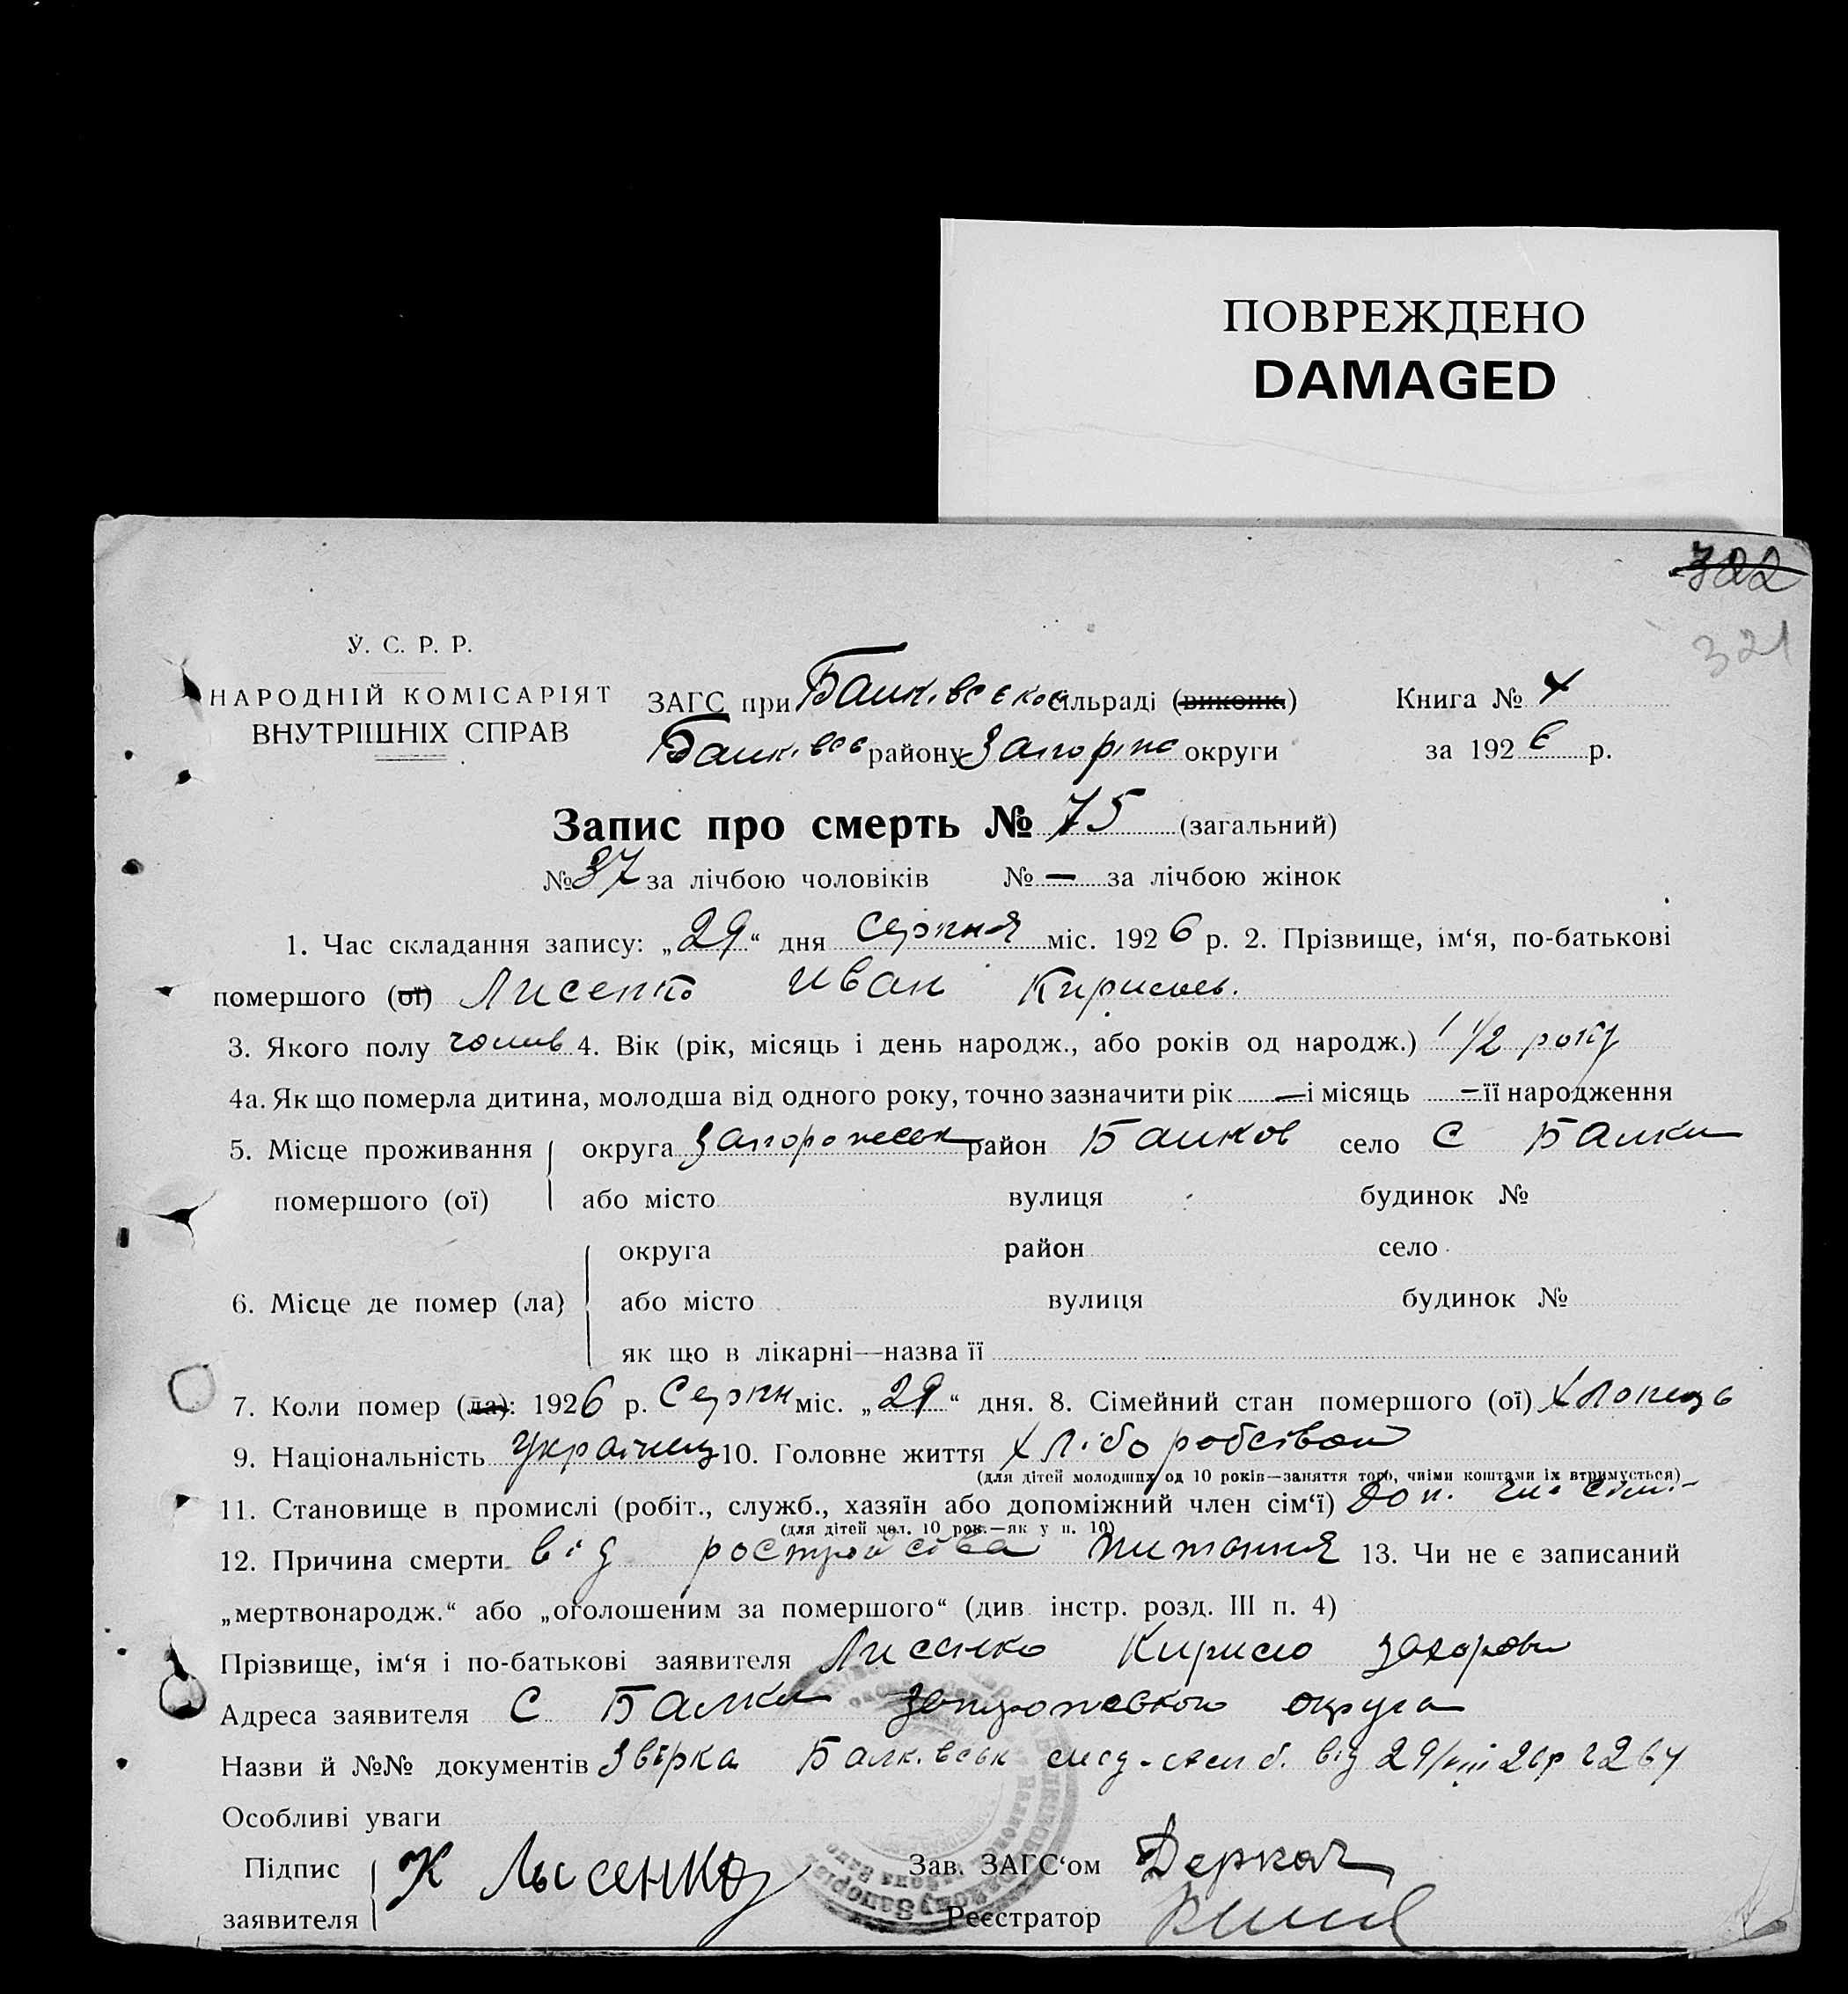 ПОВРЕЖДЕНО
DAMAGED
722
321
У. С. Р. Р.
НАРОДНІЙ КОМІСАРІЯТ
ВНУТРІШНІХ СПРАВ
ЗАГС при Балківській сільраді (виконк.)
Балківс району Запоріпс округи
Книга № 4
за 1926 р.
Запис про смерть № 75 (загальний)
№ 37 за лічбою чоловіків № — за лічбою жінок
1. Час складання запису: „29“ дня серпня міс. 1926 р. 2. Прізвище, ім‘я, по-батькові
помершого (ої) Лисенко Иван Кирилов.
3. Якого полу чолив 4. Вік (рік, місяць і день народж., або років од народж.) 1 1/2 року
4а. Як що померла дитина, молодша від одного року, точно зазначити рік — і місяць — її народження
5. Місце проживання округа Запорожськ район Балков село С Балки
помершого (ої) або місто вулиця будинок №
округа район село
6. Місце де помер (ла) або місто вулиця будинок №
як що в лікарні—назва її
7. Коли помер (ла): 1926 р. Серпн міс. „29“ дня. 8. Сімейний стан помершого (ої) хлопець
9. Національність Українец 10. Головне життя хліборобство
(для дітей молодших од 10 років—заняття того, чиїми коштами їх втримується)
11. Становище в промислі (робіт., служб., хазяїн або допоміжний член сім‘ї) Доп. чл. сім.
(для дітей мол. 10 рок.—як у п. 10)
12. Причина смерти від ростройства питання 13. Чи не є записаний
„мертвонародж.“ або „оголошеним за помершого“ (див інстр. розд. III п. 4)
Прізвище, ім‘я і по-батькові заявителя Лисенко Кирило Захоров
Адреса заявителя С Балки Запорожською округа
Назви й №№ документів Звірка Балк.вськ від 29/VIII 26р
Особливі уваги
Підпис К Лысенко Зав. ЗАГС‘ом Деркач
заявителя Реєстратор